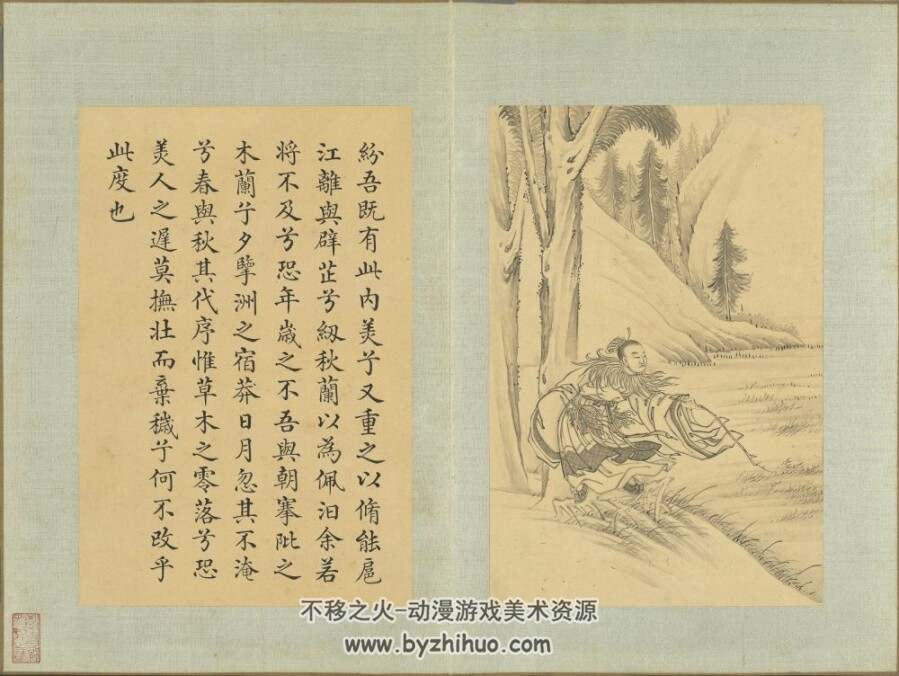 紛吾既有此内美兮又重之以脩能扈
江離與辟芷兮紉秋蘭以為佩汩余若
将不及兮恐年歲之不吾與朝搴阰之
木蘭兮夕擥洲之宿莽日月忽其不淹
兮春與秋其代序惟草木之零落兮恐
美人之遲莫撫壯而棄穢兮何不改乎
此度也
不移之火-动漫游戏美术资源
www.byzhihuo.com